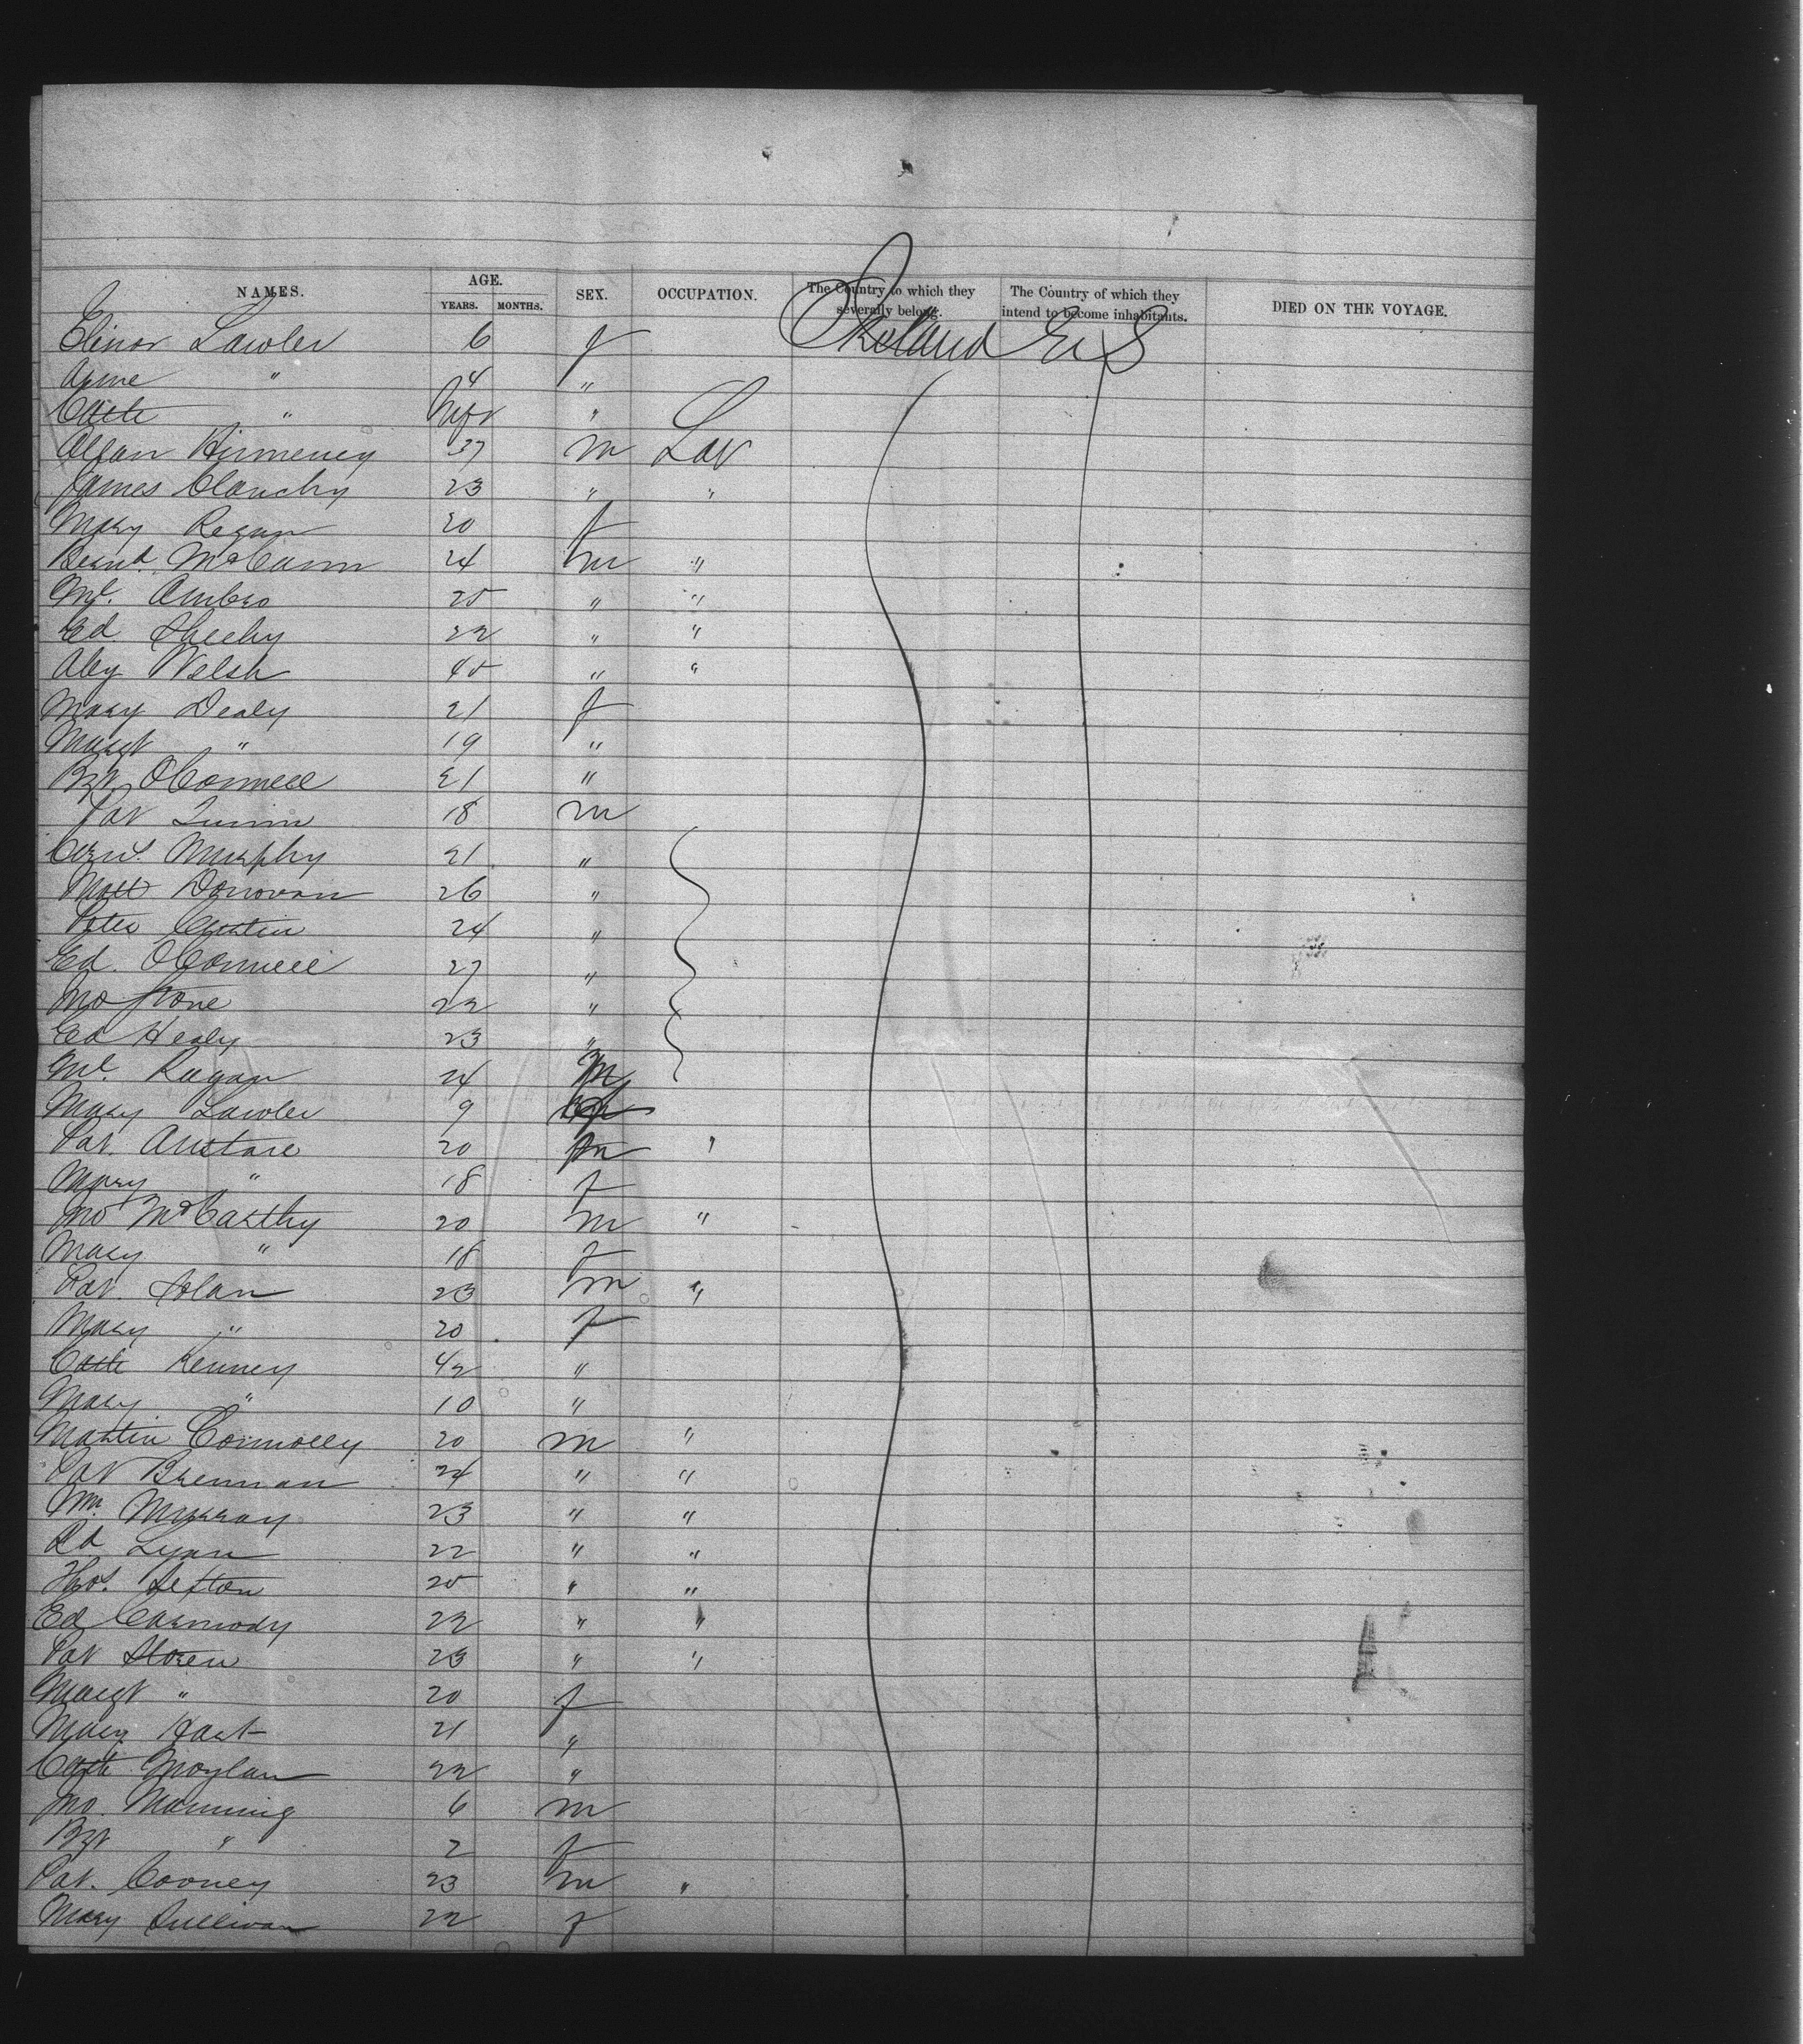 NAMES. AGE. YEARS. MONTHS. SEX. OCCUPATION. The Country to which they severally belong. The Country of which they intend to become inhabitants. DIED ON THE VOYAGE.
Elinor Lawler 6 f Ireland U S
Anne " 4 "
Cath " Inft "
Allan 37 m Lav
James Clanchy 23 " "
Mary Regan 20 f
Bernd. McCann 24 m "
Ml. Ambro 25 " "
Ed. Sheehy 22 " "
Aley Welsh 45 " "
Mary Dealy 21 f
Margt " 19 "
Bgt OConnell 21 "
Pat Quinn 18 m
Corns. Murphy 21 "
Matt Donovan 26 "
Peter Curtin 24 "
Ed. OConnell 27 "
Jno Stone 22 "
Ed Healy 23 "
Ml. Ragan 24 m
Mary Lawler 9 f
Pat. Anstare 20 m "
Mary " 18 f
Jno McCarthy 20 m "
Mary " 18 f
Pat. Nolan 23 m "
Mary " 20 f
Cath Kenney 42 "
Mary " 10 "
Martin Connolly 20 m "
Pat Brennan 24 " "
Wm. Murray 23 " "
Ed Lynn 22 " "
Thos. Sexton 25 " "
Ed Carmody 22 " "
Pat Storen 23 " "
Margt " 20 f
Mary Hart 21 "
Cath Moylan 22 "
Jno. Manning 6 m
Bgt " 2 f
Pat. Cooney 23 m "
Mary Sullivan 22 f